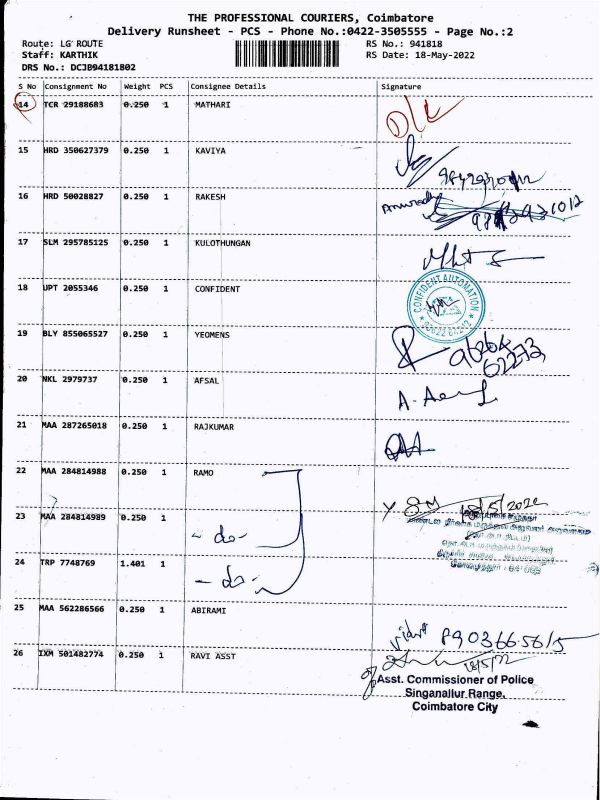 THE PROFESSIONAL COURIERS, Coimbatore
Delivery Runsheet - PCS - Phone No.:0422-3505555 - Page No.:2
Route: LG ROUTE RS No.: 941818
Staff: KARTHIK RS Date: 18-May-2022
DRS No.: DCJB94181802
S No Consignment No Weight PCS Consignee Details Signature
14 TCR 29188683 0.250 1 MATHARI
15 HRD 350627379 0.250 1 KAVIYA
16 HRD 50028827 0.250 1 RAKESH
17 SLM 295785125 0.250 1 KULOTHUNGAN
18 UPT 2055346 0.250 1 CONFIDENT
CONFIDENT AUTOMATION
19 BLY 855065527 0.250 1 YEOMENS
20 NKL 2979737 0.250 1 AFSAL
21 MAA 287265018 0.250 1 RAJKUMAR
22 MAA 284814988 0.250 1 RAMO
18/5/2022
23 MAA 284814989 0.250 1 - do -
24 TRP 7748769 1.401 1 - do -
25 MAA 562286566 0.250 1 ABIRAMI
26 IXM 501482774 0.250 1 RAVI ASST
18/5/22
Asst. Commissioner of Police
Singanallur Range,
Coimbatore City